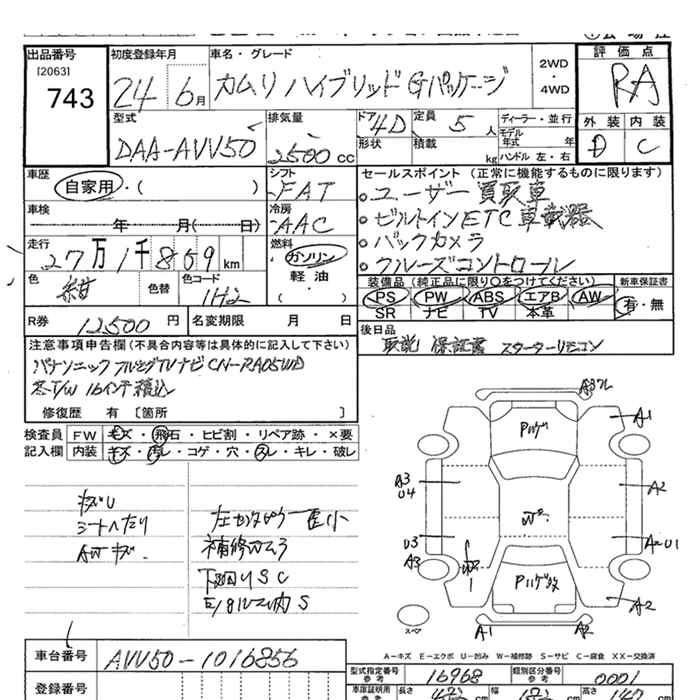 出品番号
[2063]
743
初度登録年月
24 6月
車名・グレード
カムリ ハイブリッド Gパッケージ
2WD
・
4WD
評価点
RA
外装 内装
D C
型式
DAA-AVV50
排気量
2500 cc
ドア 4D
形状
定員 5 人
積載 kg
ディーラー・並行
モデル年式 年
ハンドル 左・右
車歴
自家用・( )
シフト
FAT
セールスポイント (正常に機能するものに限ります)
ユーザー買取車
ビルトインETC車載器
バックカメラ
クルーズコントロール
車検
年 月( 日)
冷房
AAC
走行
27万1千859km
燃料
ガソリン
軽油
( )
色
紺
色替
色コード
1H2
装備品 (純正品に限り○をつけてください)
PS PW ABS エアB AW
SR ナビ TV 本革
新車保証書
有・無
R券 12500 円
名変期限 月 日
後日品
取説 保証書 スターターリモコン
注意事項申告欄(不具合内容等は具体的に記入して下さい)
パナソニック フルセグTVナビ CN-RA05WD
冬T/W 16インチ積込
修復歴 有 [箇所 ]
検査員 FW キズ・飛石・ヒビ割・リペア跡・×要
記入欄 内装 キズ・汚レ・コゲ・穴・スレ・キレ・破レ
キズU
シートヘたり
AWキズ.
補修
下廻りSC
内S
A1
A3
U4
A2
U3
A3
A2
A1
A2
スペア
A-キズ E-エクボ U-凹み W-補修跡 S-サビ C-腐食 XX-交換済
車台番号 AVV50-1016856
登録番号
型式指定番号
参考
16968
類別区分番号
参考
0001
車庫証明用
参考
長さ
幅
高さ